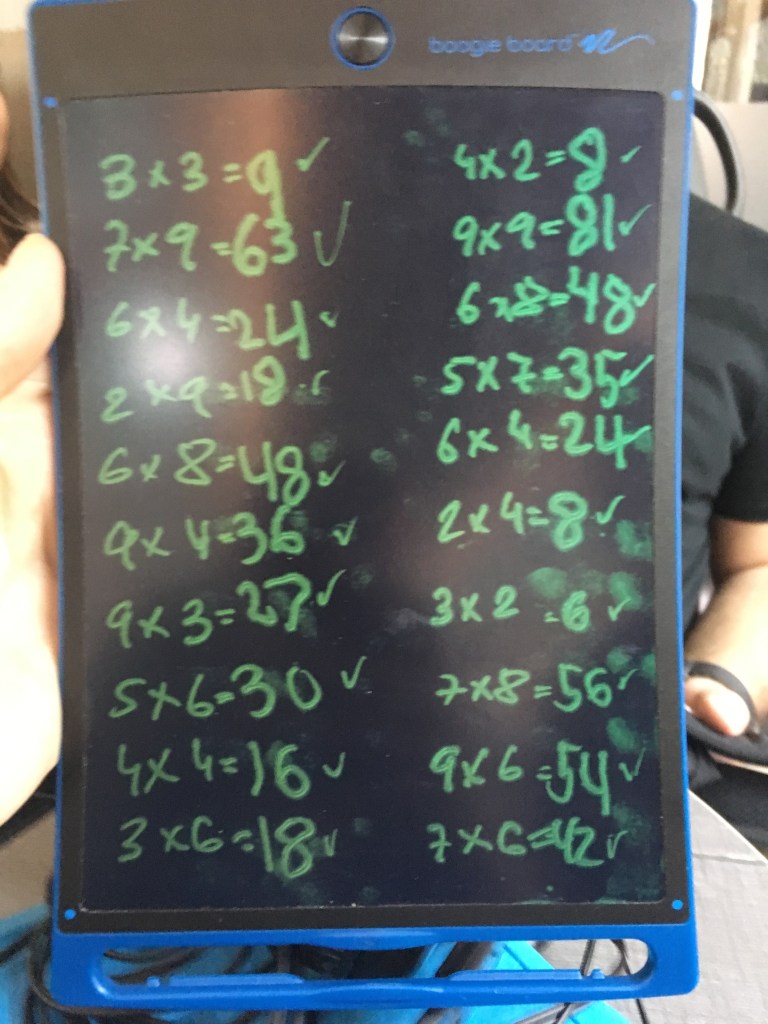 boogie board
3 x 3 = 9 ✓
7 x 9 = 63 ✓
6 x 4 = 24 ✓
2 x 9 = 18 ✓
6 x 8 = 48 ✓
9 x 4 = 36 ✓
9 x 3 = 27 ✓
5 x 6 = 30 ✓
4 x 4 = 16 ✓
3 x 6 = 18 ✓
4 x 2 = 8 ✓
9 x 9 = 81 ✓
6 x 8 = 48 ✓
5 x 7 = 35 ✓
6 x 4 = 24 ✓
2 x 4 = 8 ✓
3 x 2 = 6 ✓
7 x 8 = 56 ✓
9 x 6 = 54 ✓
7 x 6 = 42 ✓